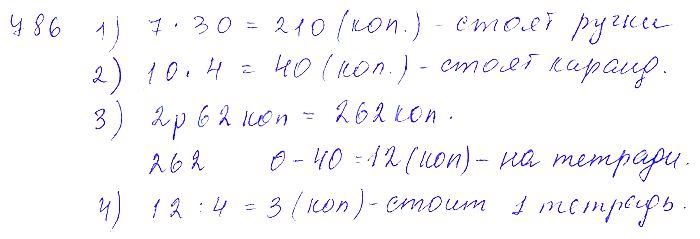 486 1) 7 · 30 = 210 (коп.) - стоят ручки
2) 10 · 4 = 40 (коп.) - стоят каранд.
3) 2р 62 коп = 262 коп.
262 0 - 40 = 12 (коп) - на тетради.
4) 12 : 4 = 3 (коп) - стоит 1 тетрадь.